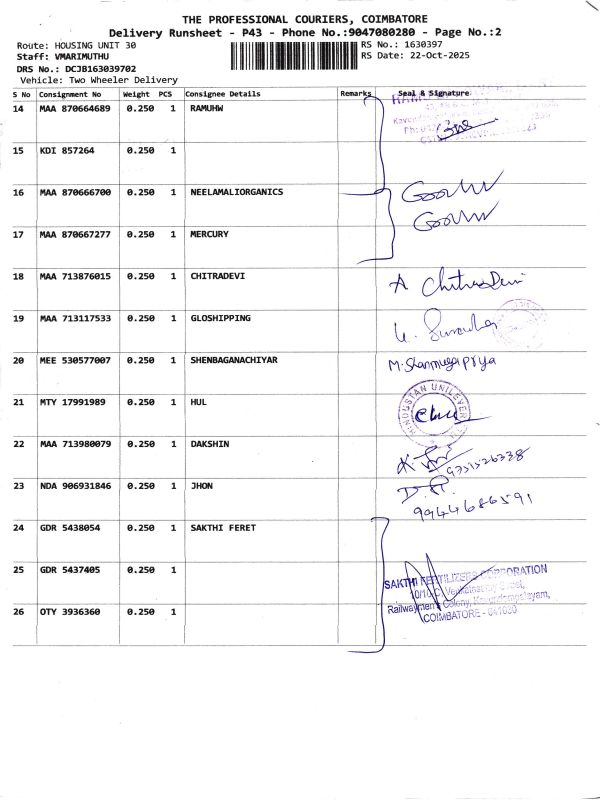 THE PROFESSIONAL COURIERS, COIMBATORE
Delivery Runsheet - P43 - Phone No.:9047080280 - Page No.:2
Route: HOUSING UNIT 30
RS No.: 1630397
Staff: VMARIMUTHU
RS Date: 22-Oct-2025
DRS No.: DCJB163039702
Vehicle: Two Wheeler Delivery
S No Consignment No Weight PCS Consignee Details Remarks Seal & Signature
14 MAA 870664689 0.250 1 RAMUHW
15 KDI 857264 0.250 1
16 MAA 870666700 0.250 1 NEELAMALIORGANICS
17 MAA 870667277 0.250 1 MERCURY
18 MAA 713876015 0.250 1 CHITRADEVI A ChitraDevi
19 MAA 713117533 0.250 1 GLOSHIPPING
20 MEE 530577007 0.250 1 SHENBAGANACHIYAR M.Shanmugapriya
21 MTY 17991989 0.250 1 HUL HINDUSTAN UNILEVER
22 MAA 713980079 0.250 1 DAKSHIN 9751526338
23 NDA 906931846 0.250 1 JHON
9944686591
24 GDR 5438054 0.250 1 SAKTHI FERET
25 GDR 5437405 0.250 1
SAKTHI FERTILIZERS CORPORATION
Railwaymen's Colony, Kavundampalayam,
COIMBATORE - 641030
26 OTY 3936360 0.250 1